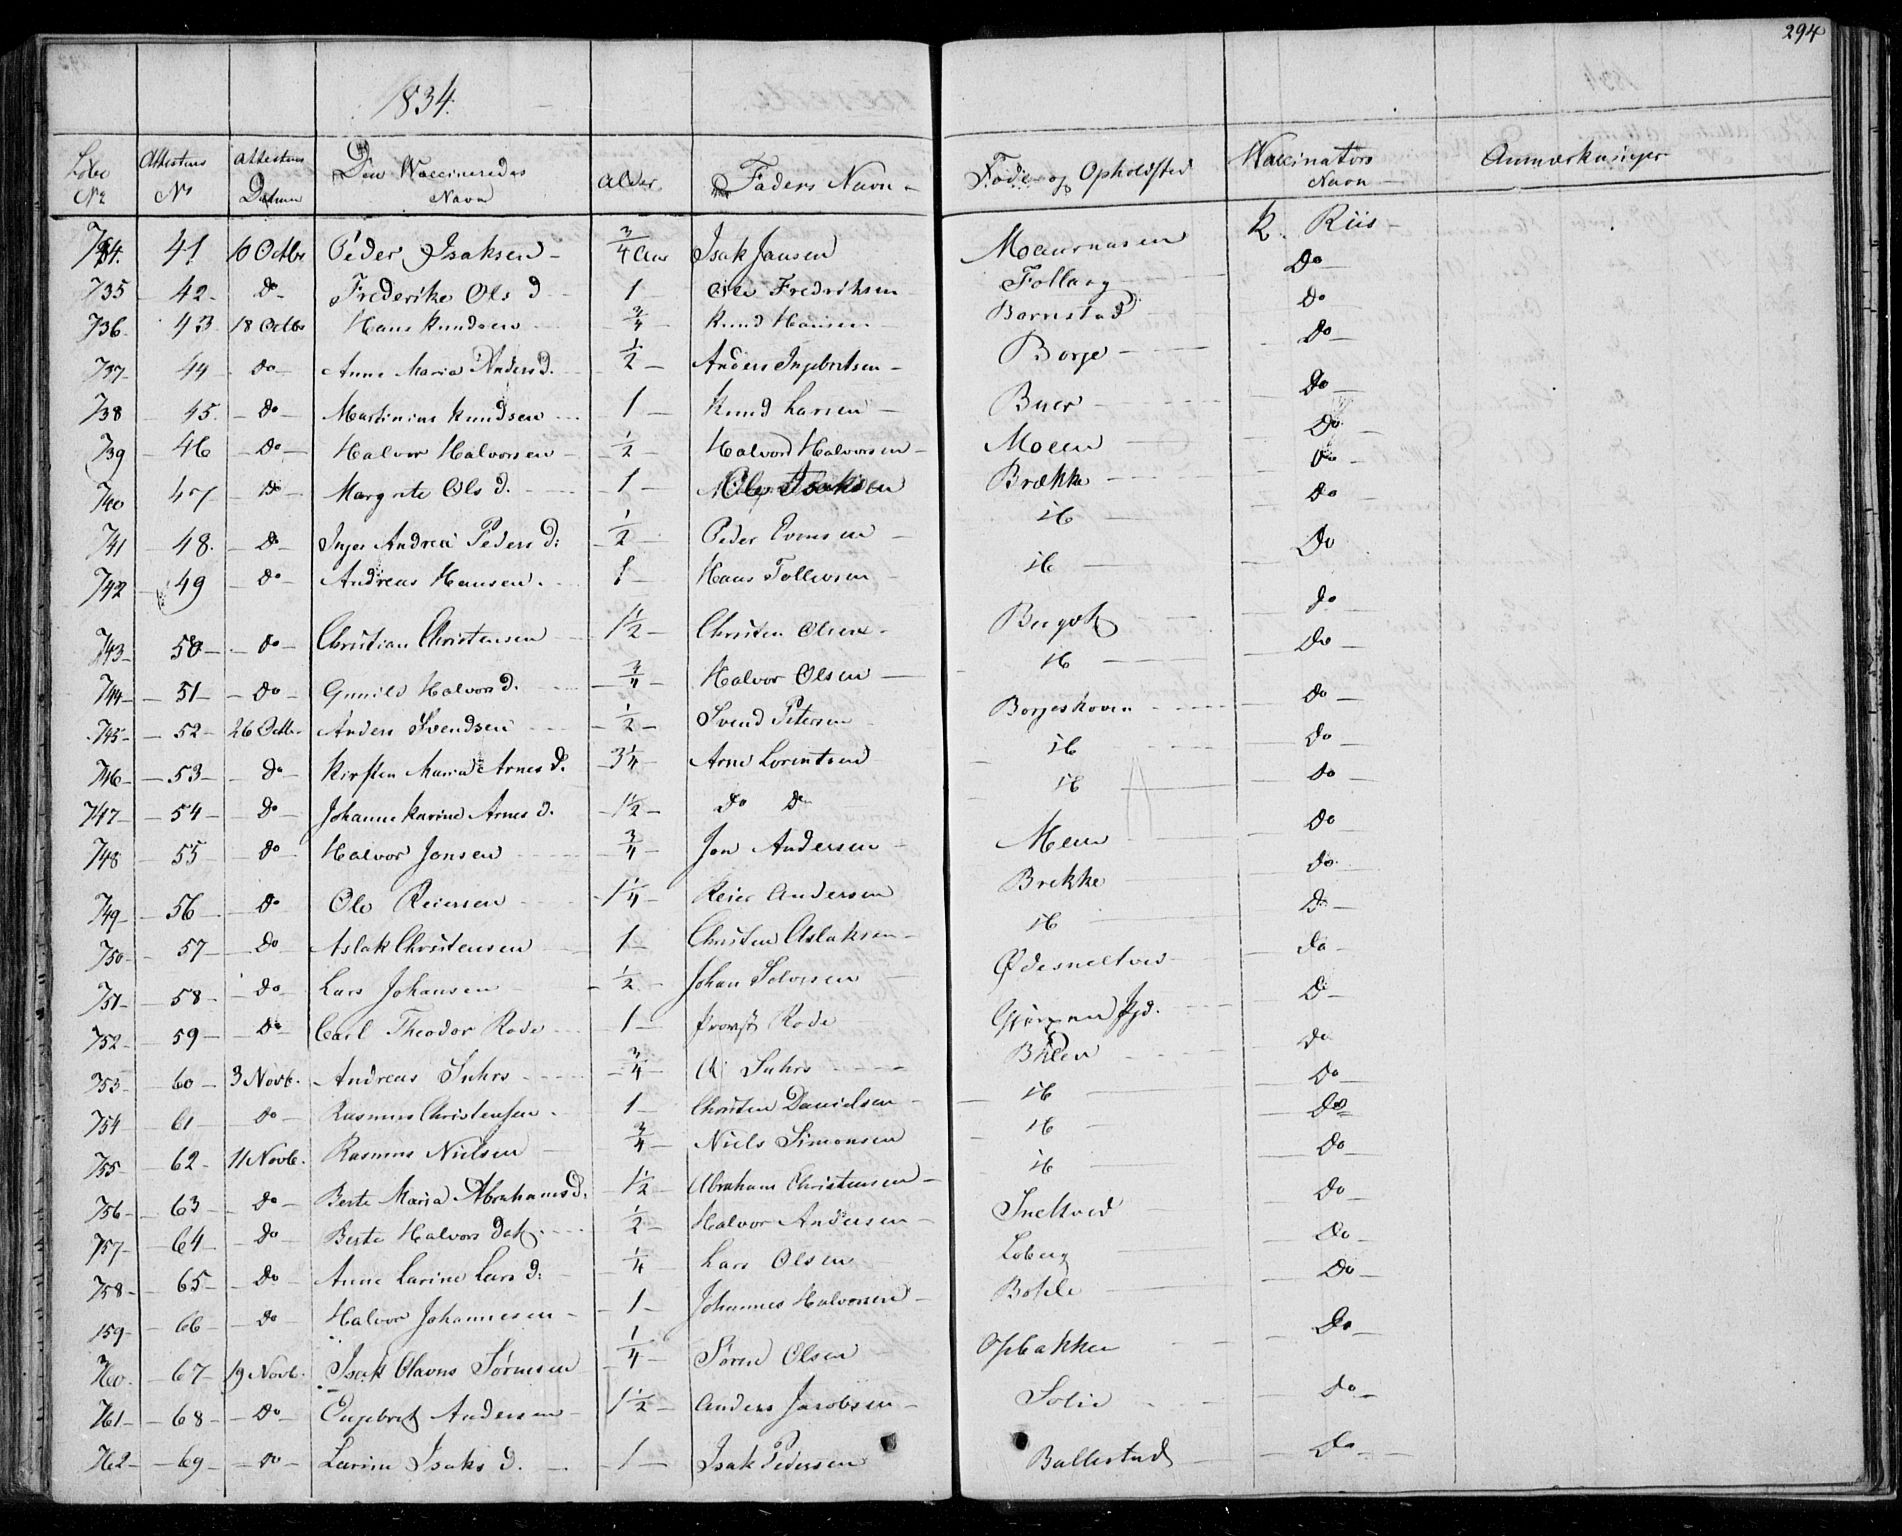 294
1834.
Løbe No Attestens No Attestens Datum Den Vaccineredes Navn Alder Faders Navn Føde- og Opholdsted Vaccinators Navn Anmærkninger
734. 41 10 Octbr Peder Isaksen 3/4 Aar Isak Jansen Maurnasen R. Riis
735 42 Do Frederike Ols D 1 Ole Fredriksen Follaug Do
736 43 18 Octbr Hans Knudsen 3/4 Knud Hansen Bornstad Do
737 44 Do Anne Maria Anders D. 1/2 Anders Ingebretsen Borge Do
738 45 Do Martinius Knudsen 1 Knud Larsen Buer Do
739 46 Do Halvor Halvorsen 1/2 Halvord Halvorsen Moeen Do
740 47 Do Margrete Ols D. 1 Ole Isaksen Brække Do
741 48 Do Inger Andrea Peders D: 1/2 Peder Evensen ib Do
742 49 Do Andreas Hansen 1 Hans Tollevsen ib Do
743 50 Do Christian Christensen 1 1/2 Christen Olsen Do
744 51 Do Gunild Halvors D. 3/4 Halvor Olsen ib Do
745 52 26 Octbr Anders Svendsen 1/2 Svend Petersen Borjeskoven Do
746 53 Do Kirsten Maria Arnes D. 3 1/4 Arne Lorentsen ib Do
747 54 Do Johanne Karine Arnes D. 1 1/2 Do Do ib Do
748 55 Do Halvor Jonsen 3/4 Jon Andersen Meen Do
749 56 Do Ole Reiersen 1 1/4 Reier Andersen Brekke Do
750 57 Do Aslak Christensen 1 Christen Aslaksen ib Do
751 58 Do Lars Johansen 1/2 Johan Solvesen Ødesneltved Do
752 59 Do Carl Theodor Rode 1 Provst Rode Gjerpen Pgd. Do
753 60 3 Novb. Andreas Suhrs 3/4 Suhrs Do
754 61 Do Rasmus Christensen 1 Christen Danielsen ib Do
755 62 11 Novb. Rasmus Nielsen 3/4 Niels Simonsen ib Do
756 63 Do Berte Maria Abrahams D. 1 1/2 Abraham Christensen ib Do
757 64 Do Berte Halvors Dat 1/2 Halvor Andersen Sneltved Do
758 65 Do Anne Larine Lars D. 1/4 Lars Olsen Loberg Do
759 66 Do Halvor Johannesen 1 Johannes Halvorsen Bohle Do
760 67 19 Novb. Isak Olavus Sørensen 1/4 Søren Olsen Opbakken Do
761 68 Do Engebret Andersen 1 1/2 Anders Jacobsen Solie Do
762 69 Do Larine Isaks D. 1 Isak Pedersen Ballestad Do